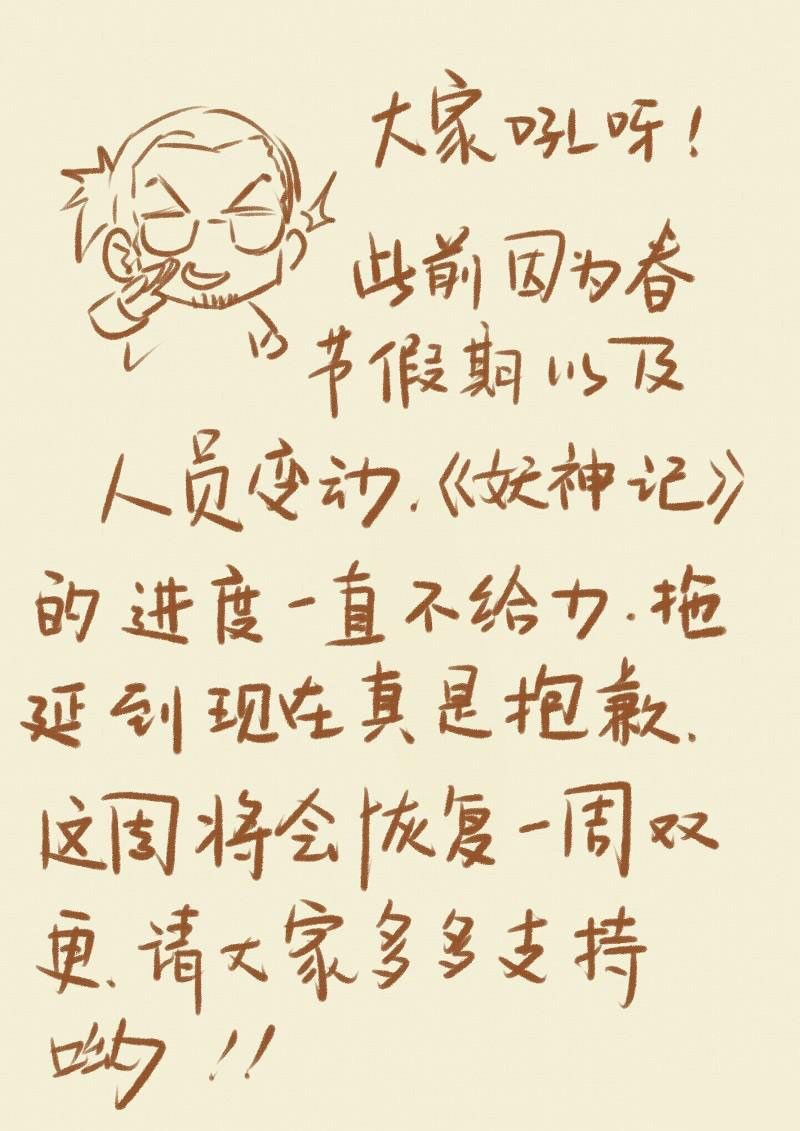 大家吼呀！
此前因为春
节假期以及
人员变动.《妖神记》
的进度一直不给力.拖
延到现在真是抱歉.
这周将会恢复一周双
更.请大家多多支持
呦!!